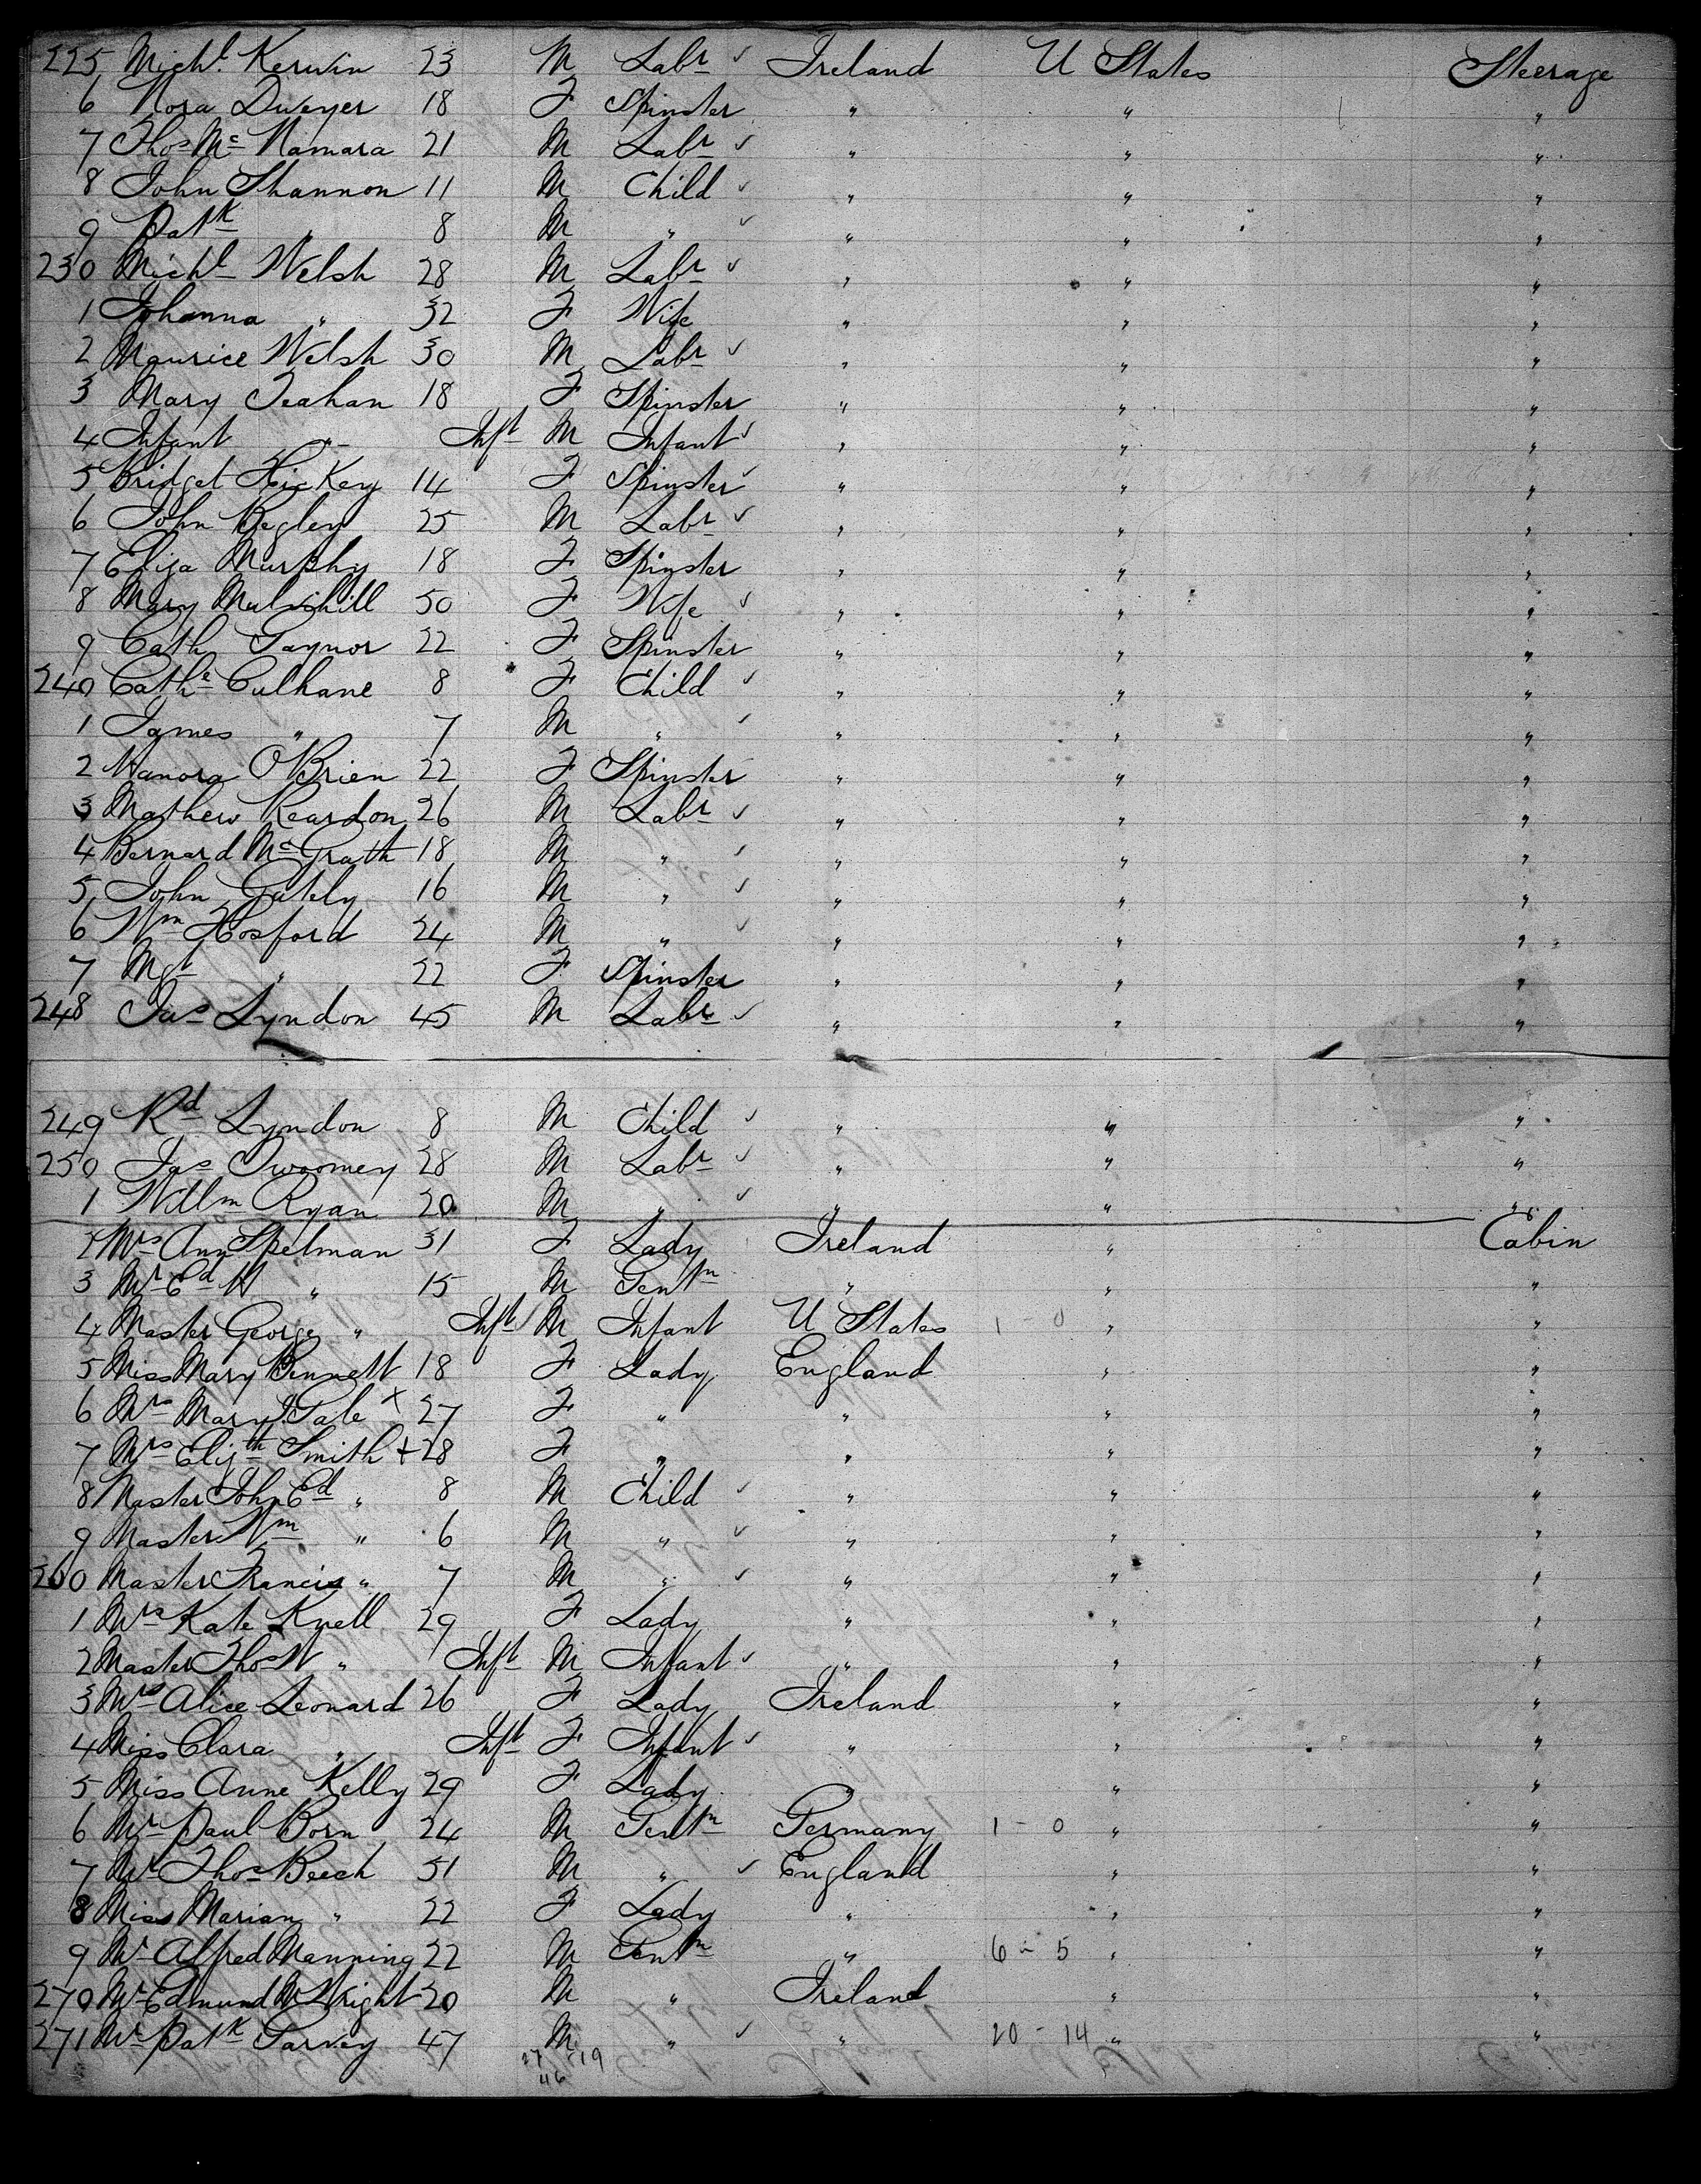 225 Michl. Kerwin 23 M Labr ✓ Ireland U States Steerage
6 Nora Dwyer 18 F Spinster " " "
7 Thos Mc Namara 21 M Labr ✓ " " "
8 John Shannon 11 M Child ✓ " " "
9 Patk " 8 M " ✓ " " "
230 Michl Welsh 28 M Labr ✓ " " "
1 Johanna " 32 F Wife " " "
2 Maurice Welsh 30 M Labr ✓ " " "
3 Mary Teahan 18 F Spinster " " "
4 Infant " Inft M Infant ✓ " " "
5 Bridget Hickey 14 F Spinster ✓ " " "
6 John Begley 25 M Labr ✓ " " "
7 Eliza Murphy 18 F Spinster " " "
8 Mary Mulvihill 50 F Wife ✓ " " "
9 Cath Gaynor 22 F Spinster " " "
240 Cathe Culhane 8 F Child ✓ " " "
1 James " 7 M " ✓ " " "
2 Hanora O'Brien 22 F Spinster " " "
3 Mathew Reardon 26 M Labr ✓ " " "
4 Bernard Mc Grath 18 M " ✓ " " "
5 John Gately 16 M " ✓ " " "
6 Wm Hosford 24 M " ✓ " " "
7 Mgt " 22 F Spinster " " "
248 Jas Lyndon 45 M Labr ✓ " " "
249 Rd Lyndon 8 M Child ✓ " " "
250 Jas Twoomey 28 M Labr ✓ " " "
1 Willm Ryan 20 M " ✓ " " "
2 Mrs Ann Spelman 31 F Lady Ireland " Cabin
3 Mr Ed W " 15 M Gentn " " "
4 Master George " Inft M Infant U States 1 - 0 " "
5 Miss Mary Bennett 18 F Lady England " "
6 Mrs Mary J. Gale x 27 F " " " "
7 Mrs Elizth Smith + 28 F " " " "
8 Master John Ed " 8 M Child ✓ " " "
9 Master Wm " 6 M " ✓ " " "
260 Master Francis " 7 M " ✓ " " "
1 Mrs Kate Knell 29 F Lady " " "
2 Master Thos W " Inft M Infant ✓ " " "
3 Mrs Alice Leonard 26 F Lady Ireland " "
4 Miss Clara " Inft F Infant ✓ " " "
5 Miss Anne Kelly 29 F Lady " " "
6 Mr Paul Born 24 M Gentn Germany 1 - 0 " "
7 Mr Thos Beech 51 M " ✓ England " "
8 Miss Marian " 22 F Lady " " "
9 Mr Alfred Manning 22 M Gentn " 6 - 5 " "
270 Mr Edmund W Wright 20 M " Ireland " "
271 Mr Patk Garvey 47 M " ✓ " 20 - 14 " "
27 - 19
46